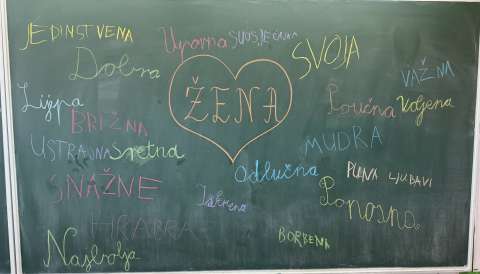 JEDINSTVENA
Uporna
SUOSJEĆAJNA
SVOJA
Dobra
VAŽNA
ŽENA
Lijepa
BRIŽNA
Poučna
Voljena
USTRAJNA
Sretna
MUDRA
Odlučna
PUNA LJUBAVI
SNAŽNE
Iskrena
Ponosna
HRABRA
BORBENA
Najbolja